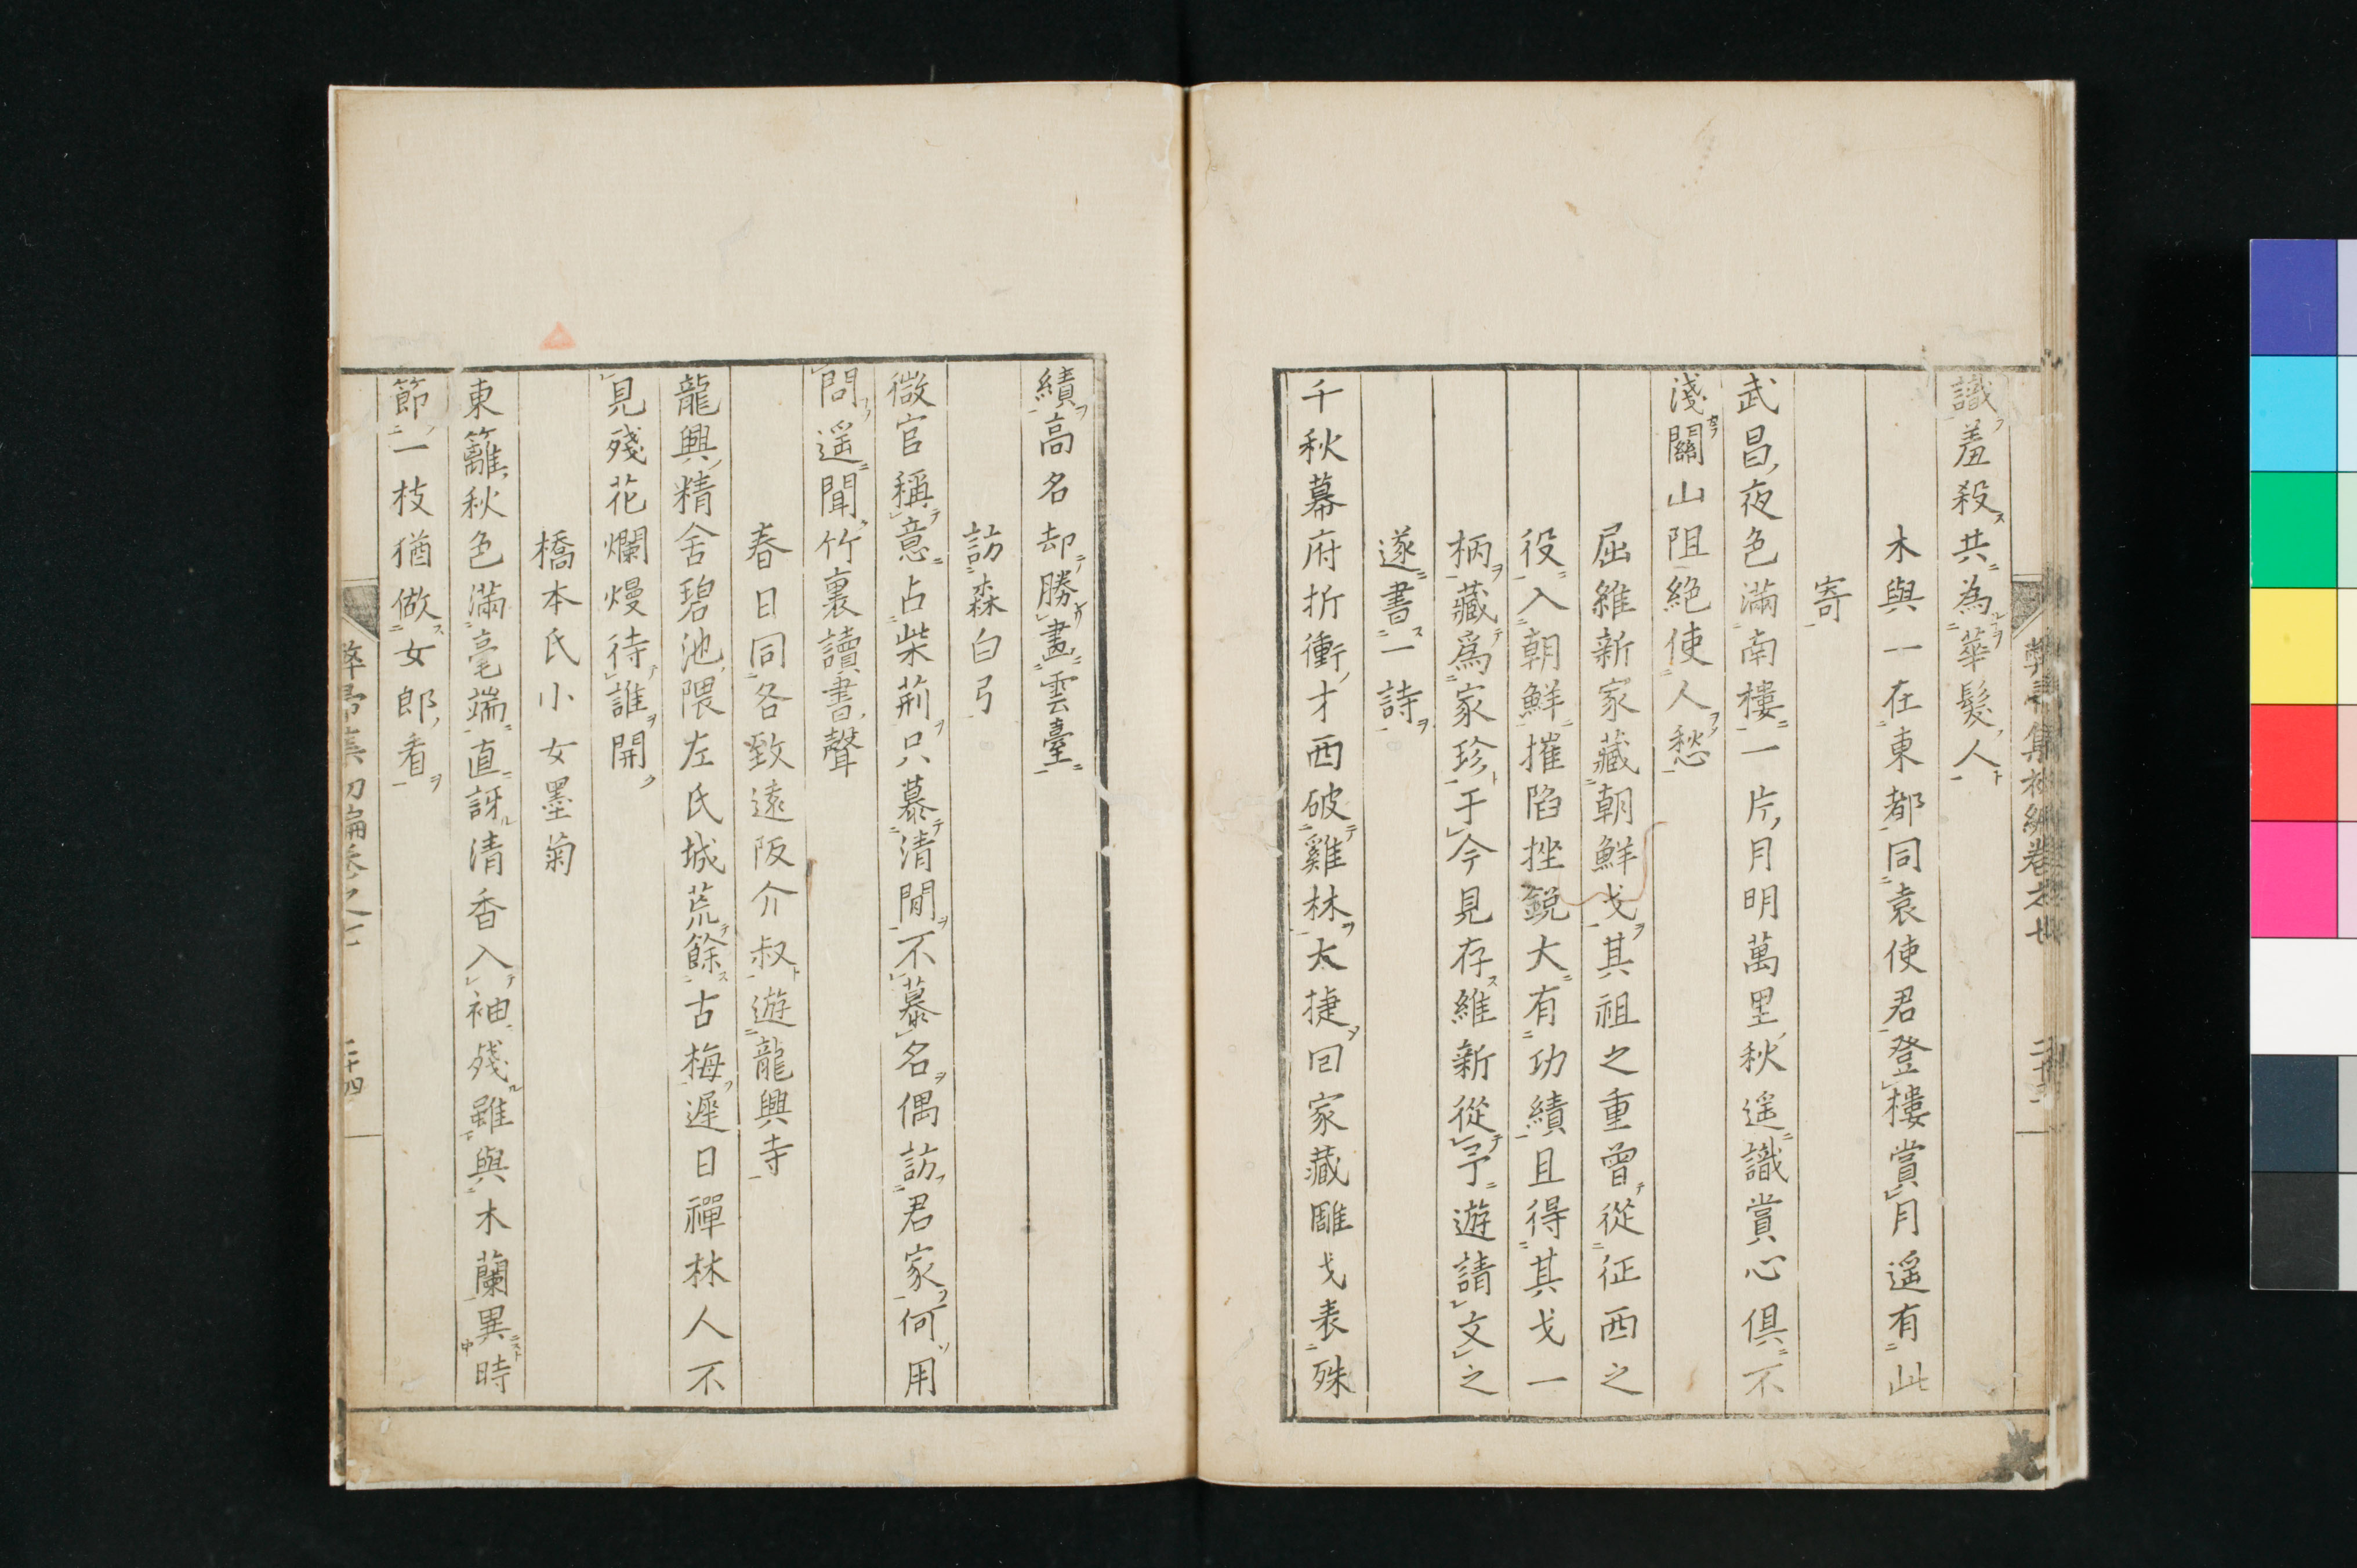 識羞殺共為華髮人
木與一在東都同袁使君登樓賞月遥有此
寄
武昌夜色滿南樓一片月明萬里秋遥識賞心俱不
淺關山阻絶使人愁
屈維新家藏朝鮮戈其祖之重曾從征西之
役入朝鮮摧陷挫鋭大有功績且得其戈一
柄藏爲家珍于今見存維新從予遊請文之
遂書一詩
千秋幕府折衝才西破雞林大捷回家藏雕戈表殊
績高名却勝畫雲臺
訪森白弓
微官稱意占柴荊只慕清閒不慕名偶訪君家何用
問遥聞竹裏讀書聲
春日同各致遠阪介叔遊龍興寺
龍興精舍碧池隈左氏城荒餘古梅遲日禪林人不
見殘花爛熳待誰開
橋本氏小女墨菊
東籬秋色滿毫端直訝清香入袖残雖與木蘭異時
節一枝猶做女郎看
二十四